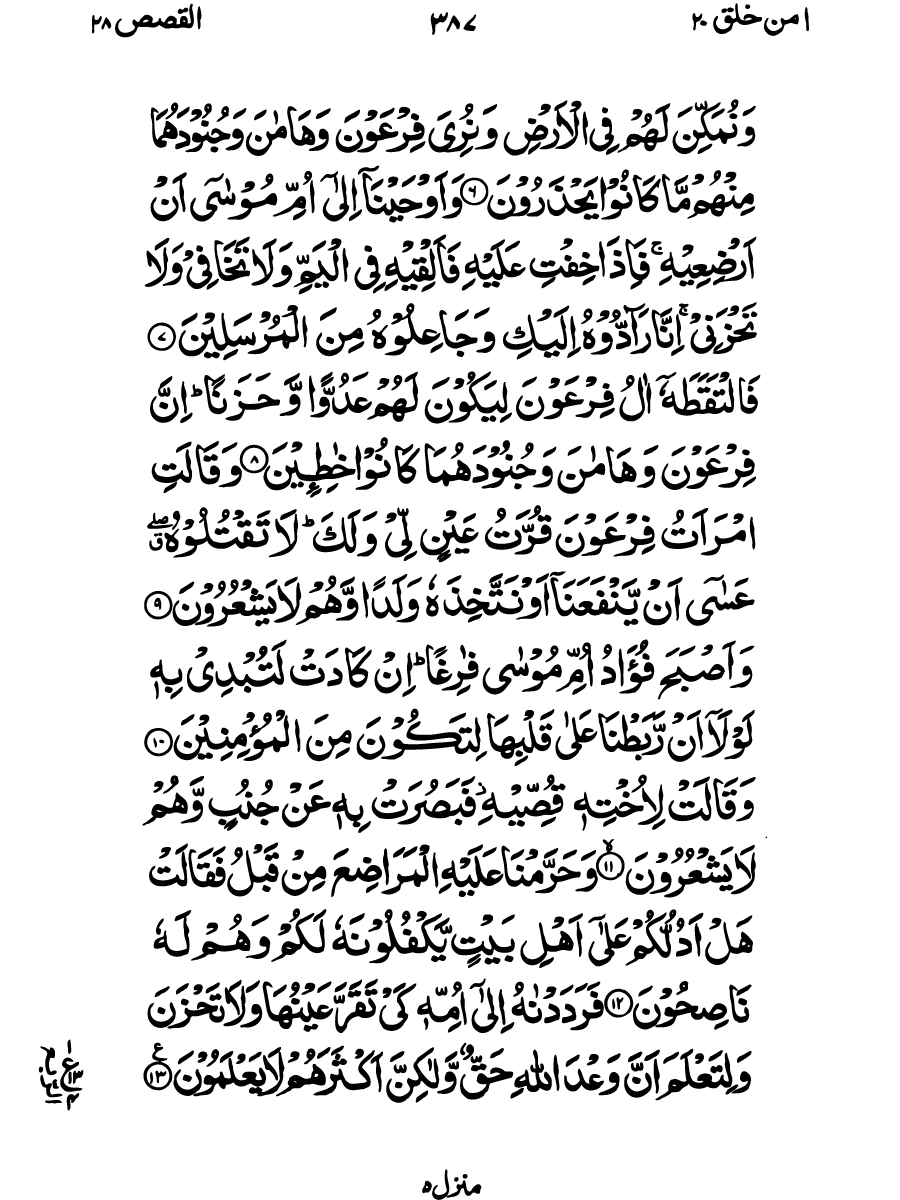 امن خلق ۲۰
۳۸۷
القصص ۲۸
وَنُمَكِّنَ لَهُمْ فِی الْاَرْضِ وَنُرِیَ فِرْعَوْنَ وَهَامٰنَ وَجُنُوْدَهُمَا
مِنْهُمْ مَّا كَانُوْا یَحْذَرُوْنَ ۶ وَاَوْحَیْنَاۤ اِلٰۤی اُمِّ مُوْسٰۤی اَنْ
اَرْضِعِیْهِ ۚ فَاِذَا خِفْتِ عَلَیْهِ فَاَلْقِیْهِ فِی الْیَمِّ وَلَا تَخَافِیْ وَلَا
تَحْزَنِیْ ۚ اِنَّا رَآدُّوْهُ اِلَیْكِ وَجَاعِلُوْهُ مِنَ الْمُرْسَلِیْنَ ۷
فَالْتَقَطَهٗۤ اٰلُ فِرْعَوْنَ لِیَكُوْنَ لَهُمْ عَدُوًّا وَّحَزَنًا ؕ اِنَّ
فِرْعَوْنَ وَهَامٰنَ وَجُنُوْدَهُمَا كَانُوْا خٰطِـِٕیْنَ ۸ وَقَالَتِ
امْرَاَتُ فِرْعَوْنَ قُرَّتُ عَیْنٍ لِّیْ وَلَكَ ؕ لَا تَقْتُلُوْهُ ۖۗ
عَسٰۤی اَنْ یَّنْفَعَنَاۤ اَوْ نَتَّخِذَهٗ وَلَدًا وَّهُمْ لَا یَشْعُرُوْنَ ۹
وَاَصْبَحَ فُؤَادُ اُمِّ مُوْسٰی فٰرِغًا ؕ اِنْ كَادَتْ لَتُبْدِیْ بِهٖ
لَوْلَاۤ اَنْ رَّبَطْنَا عَلٰی قَلْبِهَا لِتَكُوْنَ مِنَ الْمُؤْمِنِیْنَ ۱۰
وَقَالَتْ لِاُخْتِهٖ قُصِّیْهِ ؗ فَبَصُرَتْ بِهٖ عَنْ جُنُبٍ وَّهُمْ
لَا یَشْعُرُوْنَ ۱۱ۙ وَحَرَّمْنَا عَلَیْهِ الْمَرَاضِعَ مِنْ قَبْلُ فَقَالَتْ
هَلْ اَدُلُّكُمْ عَلٰۤی اَهْلِ بَیْتٍ یَّكْفُلُوْنَهٗ لَكُمْ وَهُمْ لَهٗ
نَاصِحُوْنَ ۱۲ فَرَدَدْنٰهُ اِلٰۤی اُمِّهٖ كَیْ تَقَرَّ عَیْنُهَا وَلَا تَحْزَنَ
وَلِتَعْلَمَ اَنَّ وَعْدَ اللّٰهِ حَقٌّ وَّلٰكِنَّ اَكْثَرَهُمْ لَا یَعْلَمُوْنَ ۱۳ ع
منزل ۵